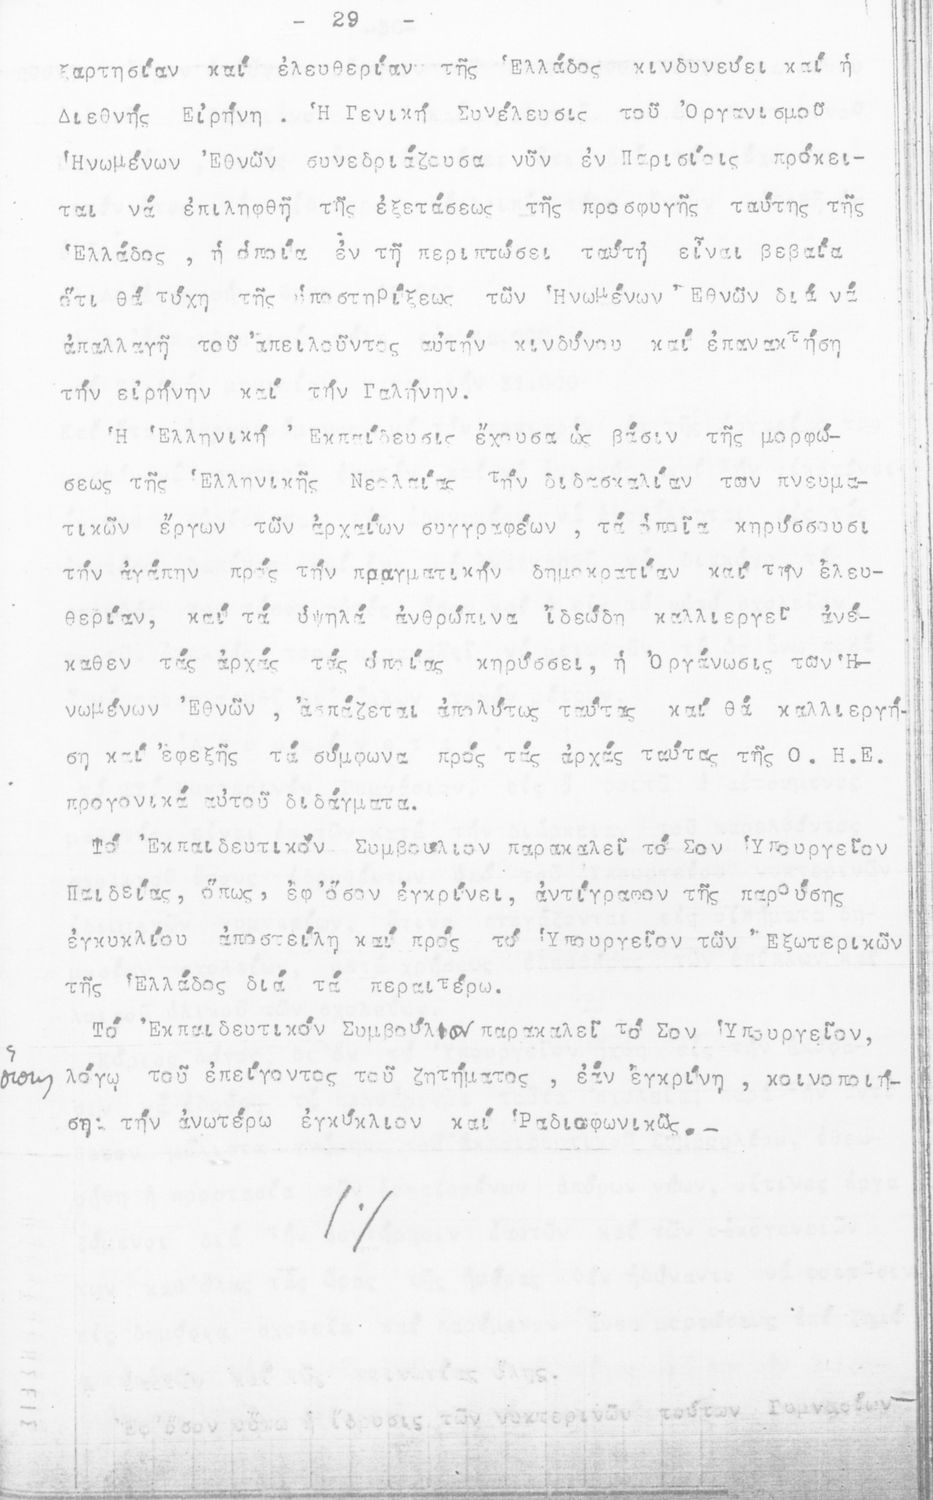 - 29 -
ξαρτησίαν καί ἐλευθερίαν τῆς Ἑλλάδος κινδυνεύει καί ἡ
Διεθνής Εἰρήνη . Ἡ Γενική Συνέλευσις τοῦ Ὀργανισμοῦ
Ἡνωμένων Ἐθνῶν συνεδριάζουσα νῦν ἐν Παρισίοις πρόκει-
ται νά ἐπιληφθῆ τῆς ἐξετάσεως τῆς προσφυγῆς ταύτης τῆς
Ἑλλάδος , ἡ ὁποία ἐν τῆ περιπτώσει ταύτη εἶναι βεβαία
ὅτι θά τύχη τῆς ὑποστηρίξεως τῶν Ἡνωμένων Ἐθνῶν διά νά
ἀπαλλαγῆ τοῦ ἀπειλοῦντος αὐτήν κινδύνου καί ἐπανακτήση
τήν εἰρήνην καί τήν Γαλήνην.
Ἡ Ἑλληνική Ἐκπαίδευσις ἔχουσα ὡς βάσιν τῆς μορφώ-
σεως τῆς Ἑλληνικῆς Νεολαίας τήν διδασκαλίαν των πνευμα-
τικῶν ἔργων τῶν ἀρχαίων συγγραφέων , τά ὁποῖα κηρύσσουσι
τήν ἀγάπην πρός τήν πραγματικήν δημοκρατίαν καί την ἐλευ-
θερίαν, καί τά ὑψηλά ἀνθρώπινα ἰδεώδη καλλιεργεῖ ἀνέ-
καθεν τάς ἀρχάς τάς ὁποίας κηρύσσει, ἡ Ὀργάνωσις των Ἡ-
νωμένων Ἐθνῶν , ἀσπάζεται ἀπολύτως ταύτας καί θά καλλιεργή-
ση καί ἐφεξῆς τά σύμφωνα πρός τάς ἀρχάς ταύτας τῆς Ο . Η.Ε.
προγονικά αὐτοῦ διδάγματα.
Τό Ἐκπαιδευτικόν Συμβούλιον παρακαλεῖ τό Σον Ὑπουργεῖον
Παιδείας, ὅπως, ἐφ'ὅσον ἐγκρίνει, ἀντίγραφον τῆς παρούσης
ἐγκυκλίου ἀποστείλη καί πρός τό Ὑπουργεῖον τῶν Ἐξωτερικῶν
τῆς Ἑλλάδος διά τά περαιτέρω.
Τό Ἐκπαιδευτικόν Συμβούλιον παρακαλεῖ τό Σον Ὑπουργεῖον,
λόγῳ τοῦ ἐπείγοντος τοῦ ζητήματος , ἐάν ἐγκρίνη , κοινοποιή-
ση τήν ἀνωτέρω ἐγκύκλιον καί Ραδιοφωνικῶς.—
/./